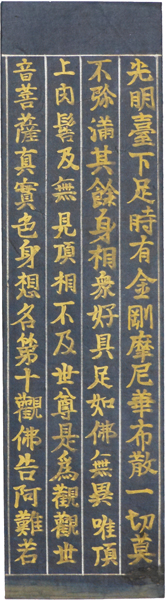 光明臺下足時有金剛摩尼華布散一切莫
不弥滿其餘身相衆好具足如佛無異唯頂
上肉髻及無見頂相不及世尊是爲觀觀世
音菩薩真實色身想名第十觀佛告阿難若